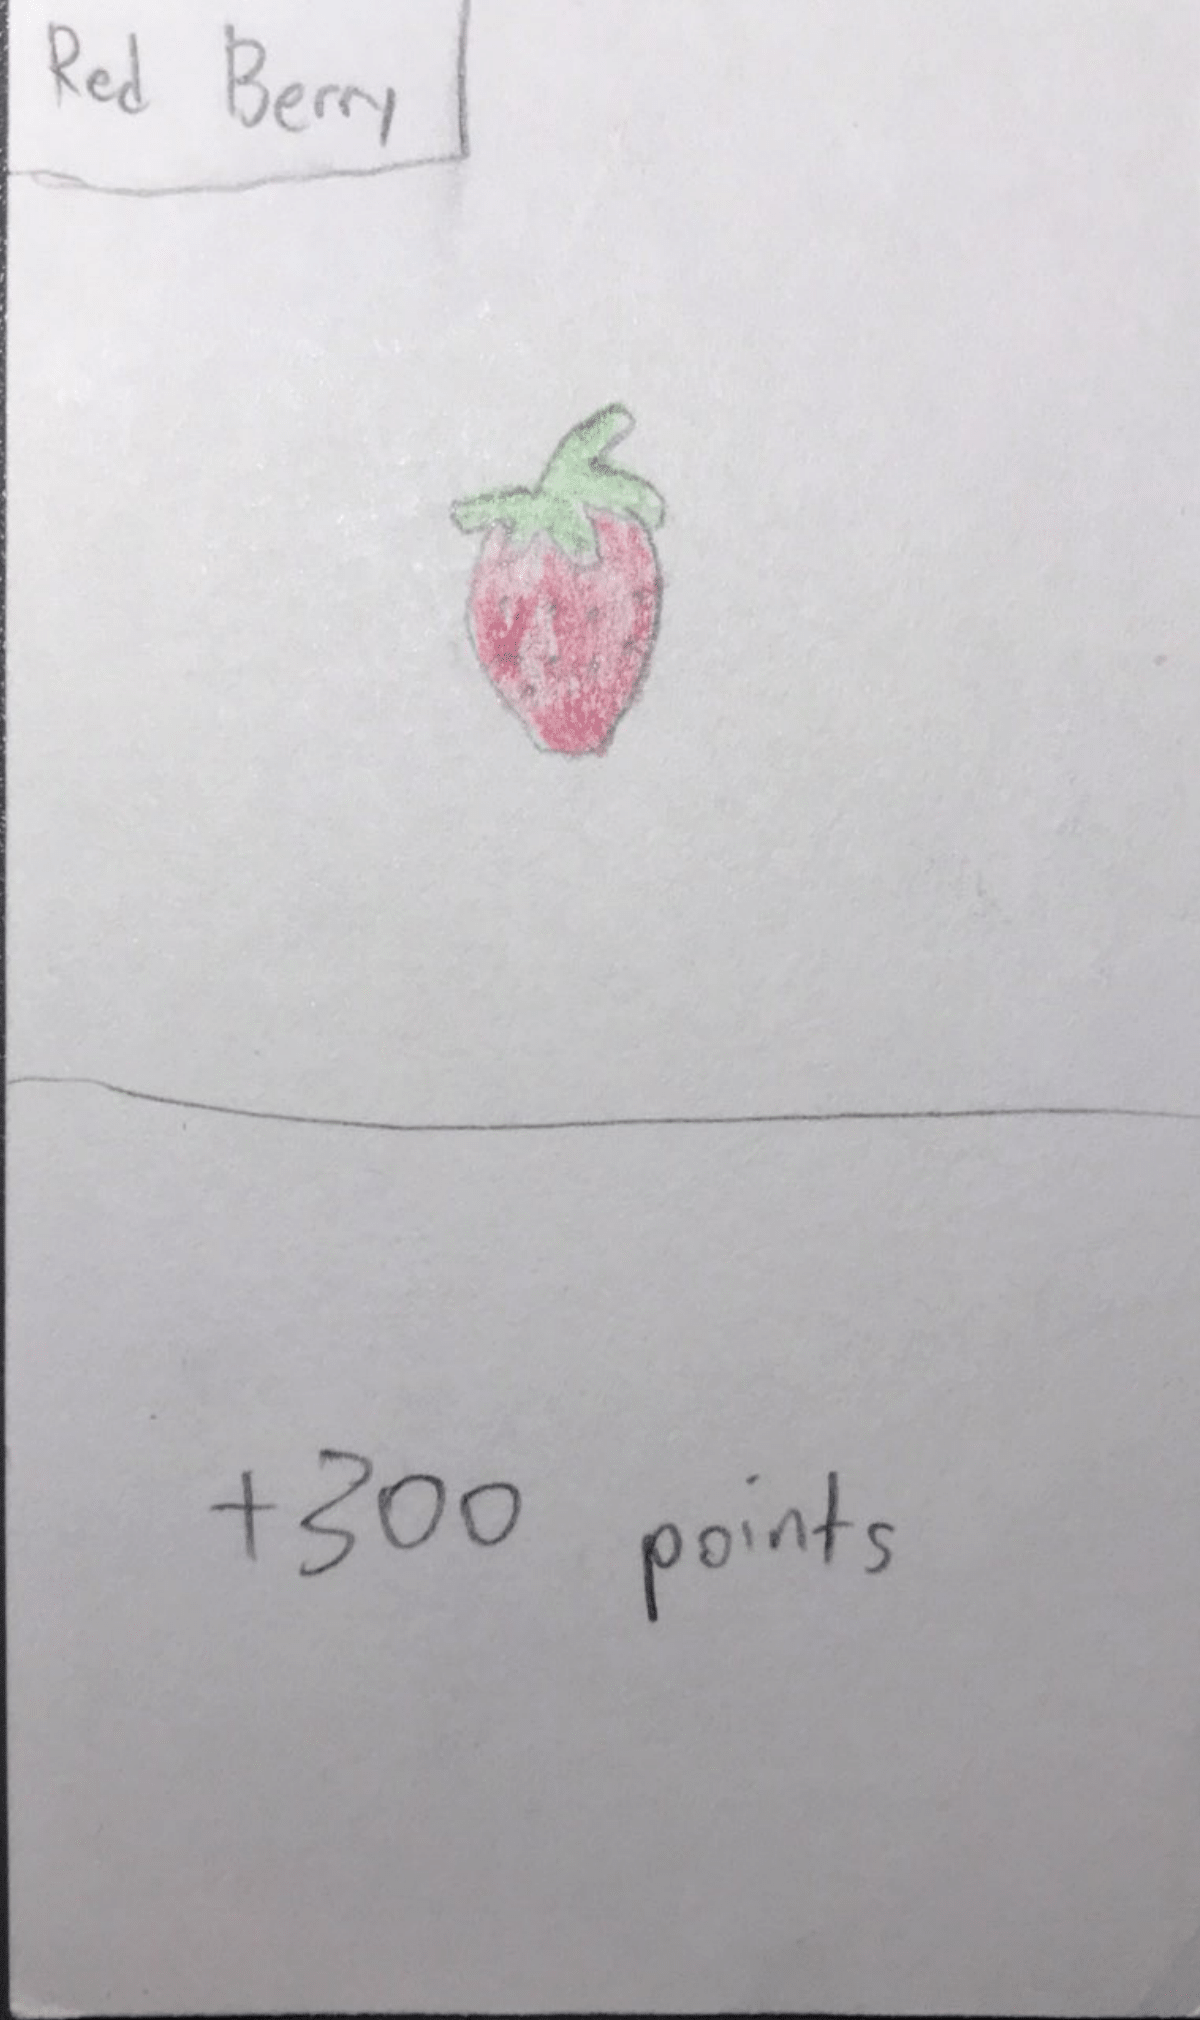 Red Berry
+300 points